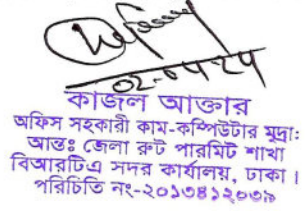 ০২-০৭-২৭
কাজল আক্তার
অফিস সহকারী কাম-কম্পিউটার মুদ্রা:
আন্তঃ জেলা রুট পারমিট শাখা
বিআরটিএ সদর কার্যালয়, ঢাকা।
পরিচিতি নং-২০১৩৪১২০৩৯